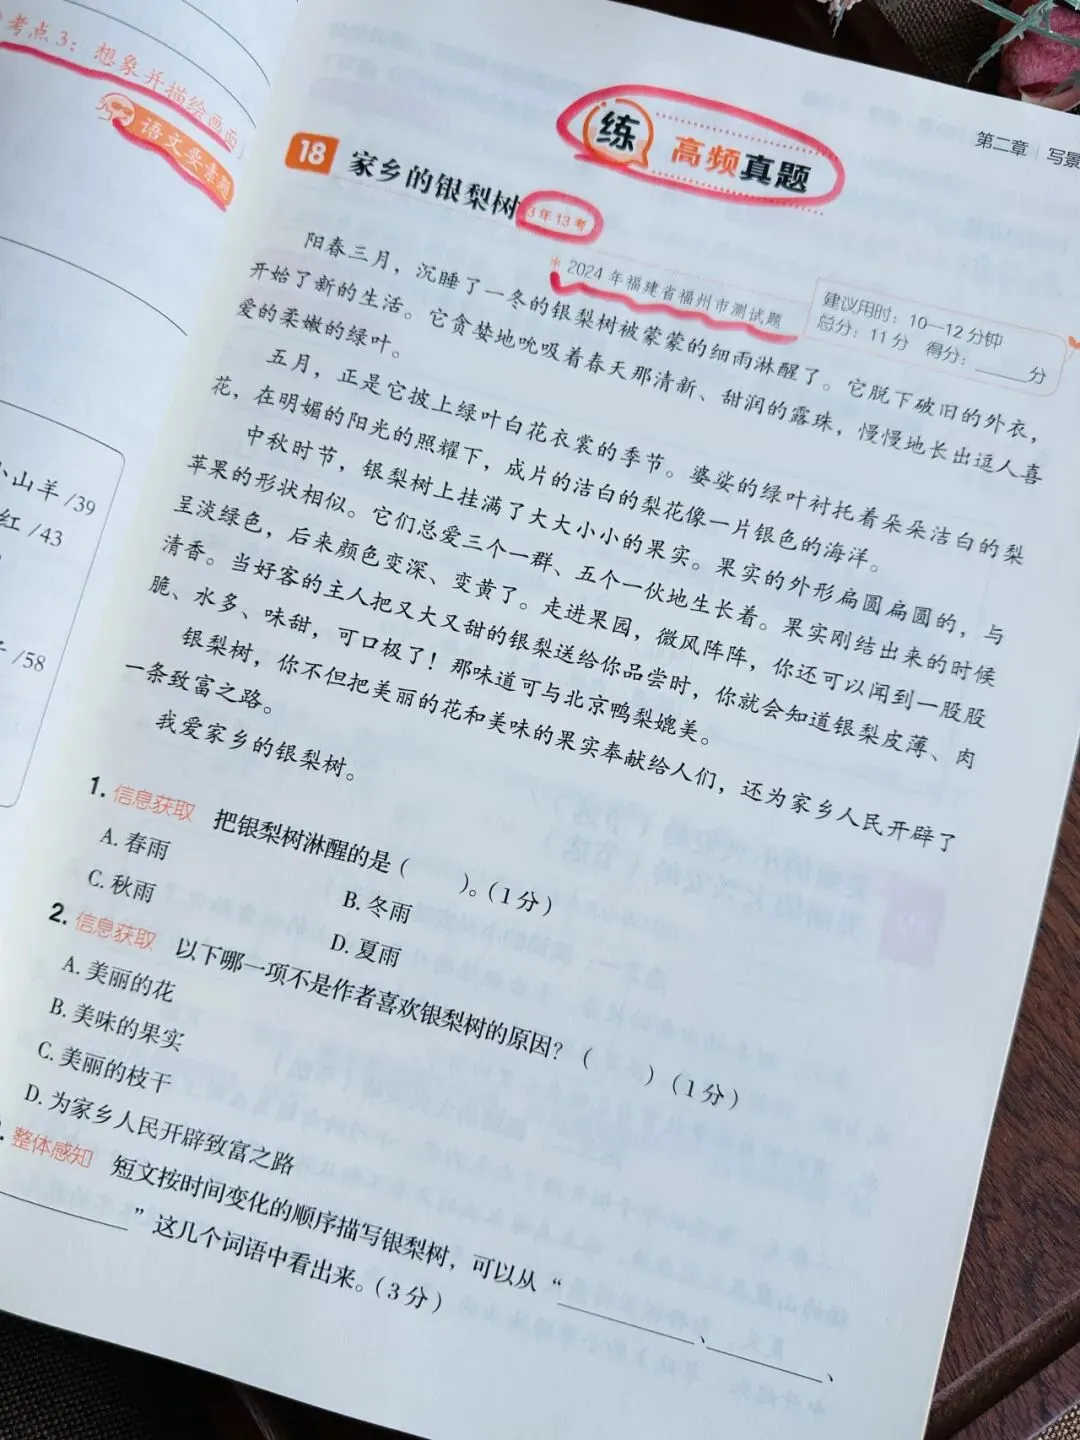 考点3：想象并描绘画面
语文要素
小山羊/39
红/43
/58
第二章 写景
练 高频真题
18 家乡的银梨树 3年13考
* 2024年福建省福州市测试题
建议用时：10—12分钟
总分：11分 得分：____分
阳春三月，沉睡了一冬的银梨树被蒙蒙的细雨淋醒了。它脱下破旧的外衣，
开始了新的生活。它贪婪地吮吸着春天那清新、甜润的露珠，慢慢地长出逗人喜
爱的柔嫩的绿叶。
五月，正是它披上绿叶白花衣裳的季节。婆娑的绿叶衬托着朵朵洁白的梨
花，在明媚的阳光的照耀下，成片的洁白的梨花像一片银色的海洋。
中秋时节，银梨树上挂满了大大小小的果实。果实的外形扁圆扁圆的，与
苹果的形状相似。它们总爱三个一群、五个一伙地生长着。果实刚结出来的时候
呈淡绿色，后来颜色变深、变黄了。走进果园，微风阵阵，你还可以闻到一股股
清香。当好客的主人把又大又甜的银梨送给你品尝时，你就会知道银梨皮薄、肉
脆、水多、味甜，可口极了！那味道可与北京鸭梨媲美。
银梨树，你不但把美丽的花和美味的果实奉献给人们，还为家乡人民开辟了
一条致富之路。
我爱家乡的银梨树。
1. 信息获取 把银梨树淋醒的是（ ）。（1分）
A. 春雨 B. 冬雨
C. 秋雨 D. 夏雨
2. 信息获取 以下哪一项不是作者喜欢银梨树的原因？（ ）（1分）
A. 美丽的花
B. 美味的果实
C. 美丽的枝干
D. 为家乡人民开辟致富之路
整体感知 短文按时间变化的顺序描写银梨树，可以从“________、________、
________”这几个词语中看出来。（3分）